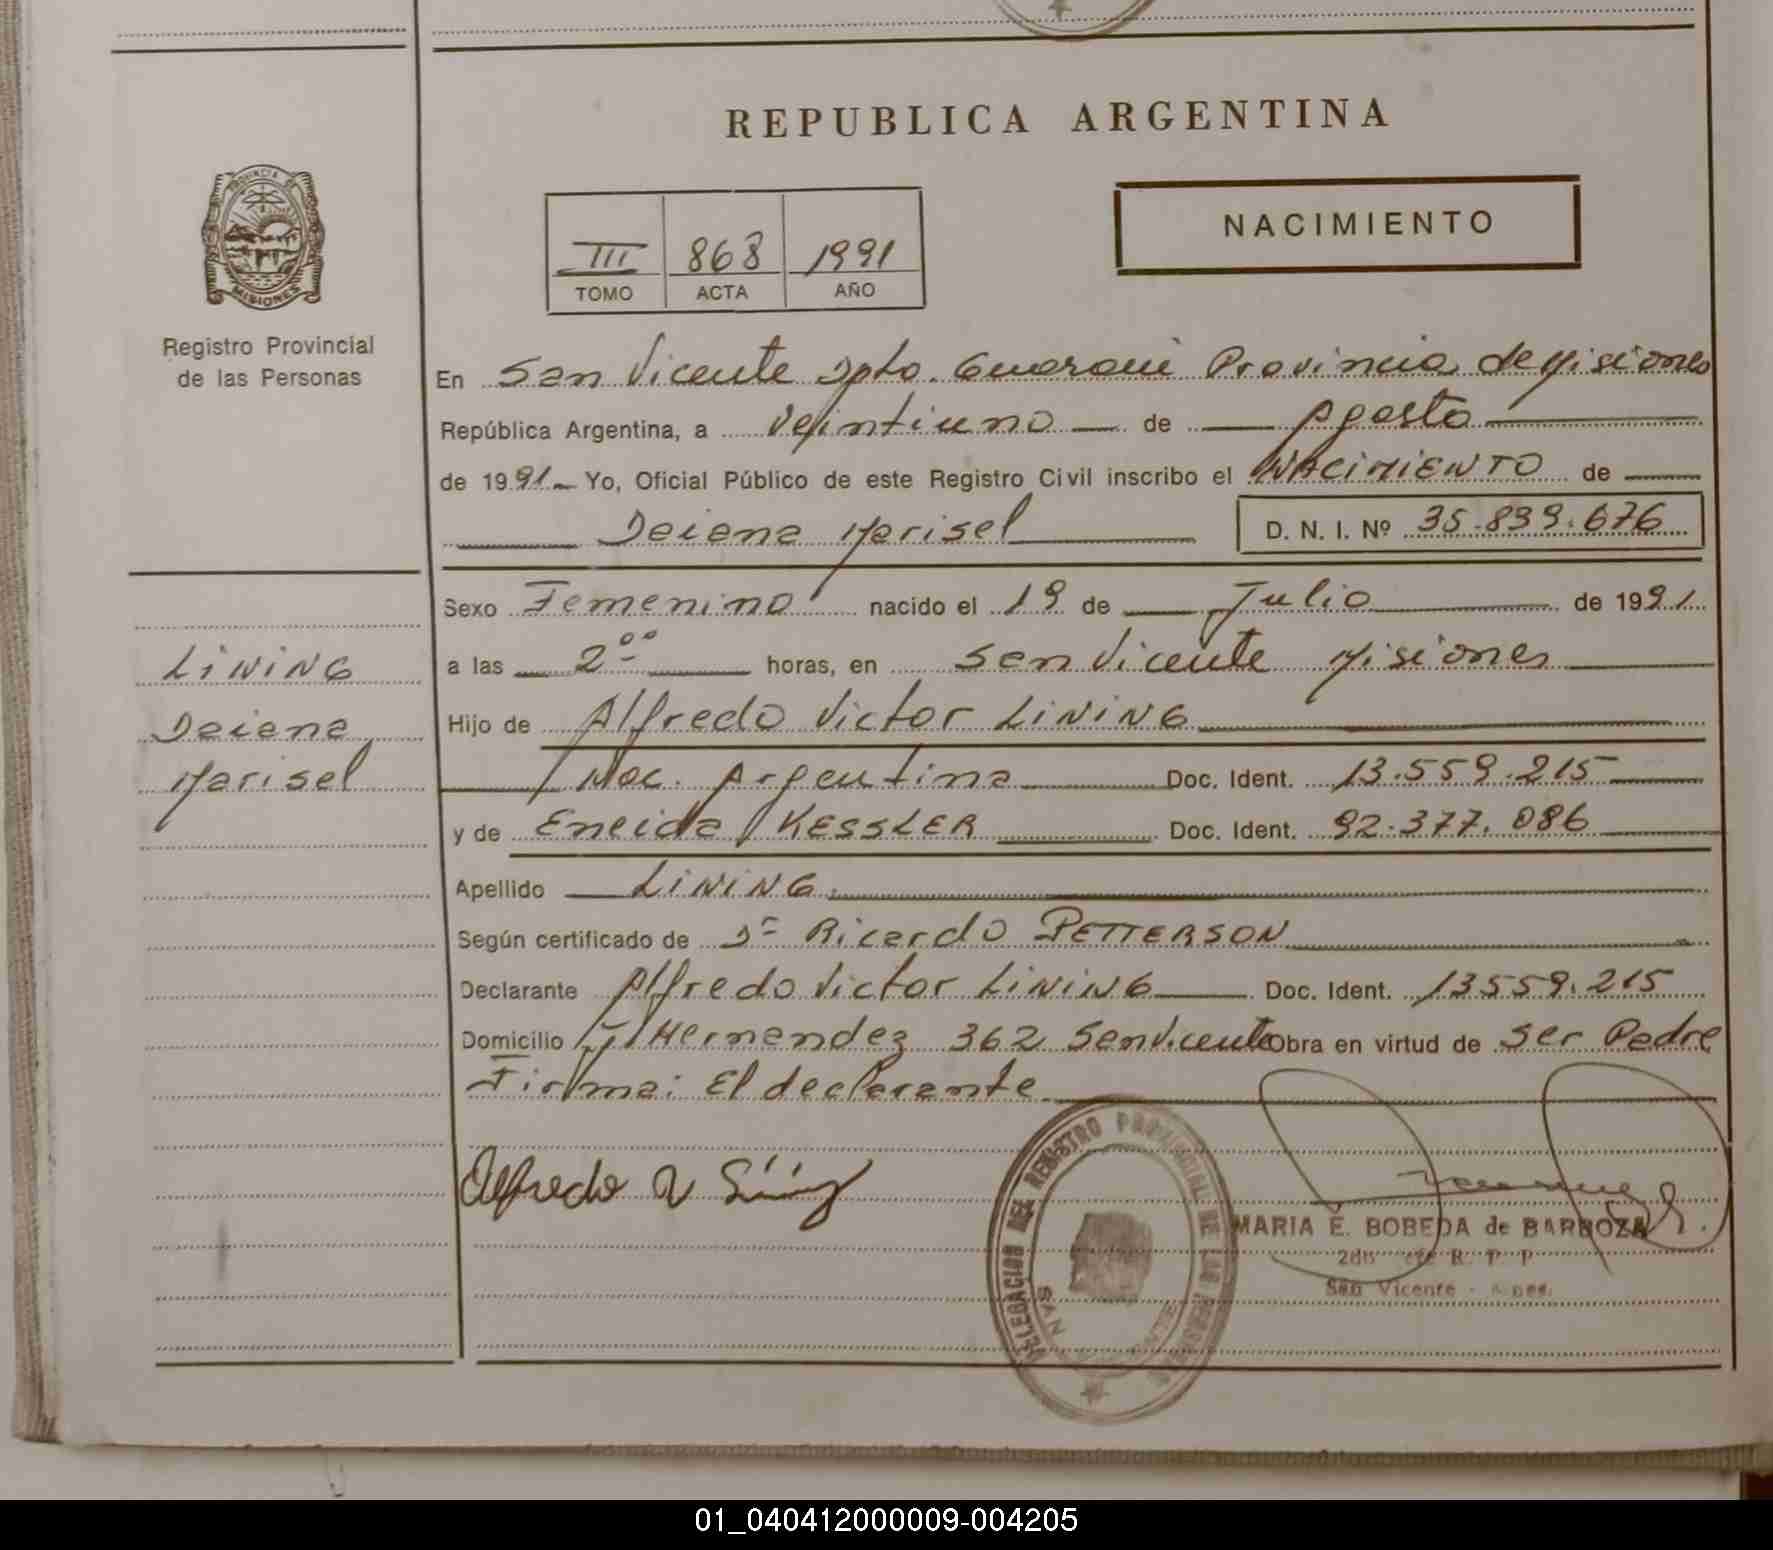 REPUBLICA ARGENTINA
PROVINCIA DE
MISIONES
Registro Provincial
de las Personas
NACIMIENTO
III 868 1991
TOMO ACTA AÑO
En San Vicente Dpto. Guarani Provincia de Misiones
República Argentina, a Veintiuno de Agosto
de 1991 Yo, Oficial Público de este Registro Civil inscribo el NACIMIENTO de
Daiana Marisel D. N. I. Nº 35.899.676
Sexo Femenino nacido el 19 de Julio de 1991
a las 2ºº horas, en San Vicente Misiones
Hijo de Alfredo Victor LiNiNG
Nac. Argentina Doc. Ident. 13.559.215
y de Eneida KESSLER Doc. Ident. 92.377.086
Apellido LiNiNG
Según certificado de Dr Ricardo PETTERSON
Declarante Alfredo Victor LiNiNG Doc. Ident. 13559.215
Domicilio Hernandez 362 San Vicente Obra en virtud de Ser Padre
Firma: El declarante
LiNiNG
Daiana
Marisel
Alfredo V Lining
DELEGACION DEL REGISTRO PROVINCIAL DE LAS PERSONAS
SAN VICENTE
MARIA E. BOBEDA de BARBOZA
R. P. P
San Vicente
01_040412000009-004205